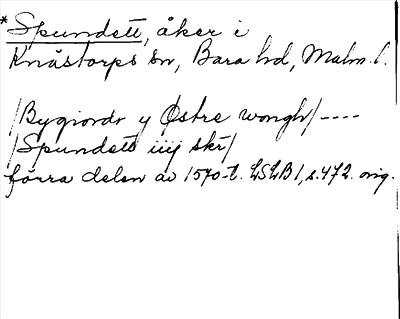 *Spundett, åker i
Knästorps sn, Bara hd, Malm. l.
/Bygiordr y Østre wongh/----
/Spundett iiij skr/
förra delen av 1570-t. LSLB 1, s. 472. orig.